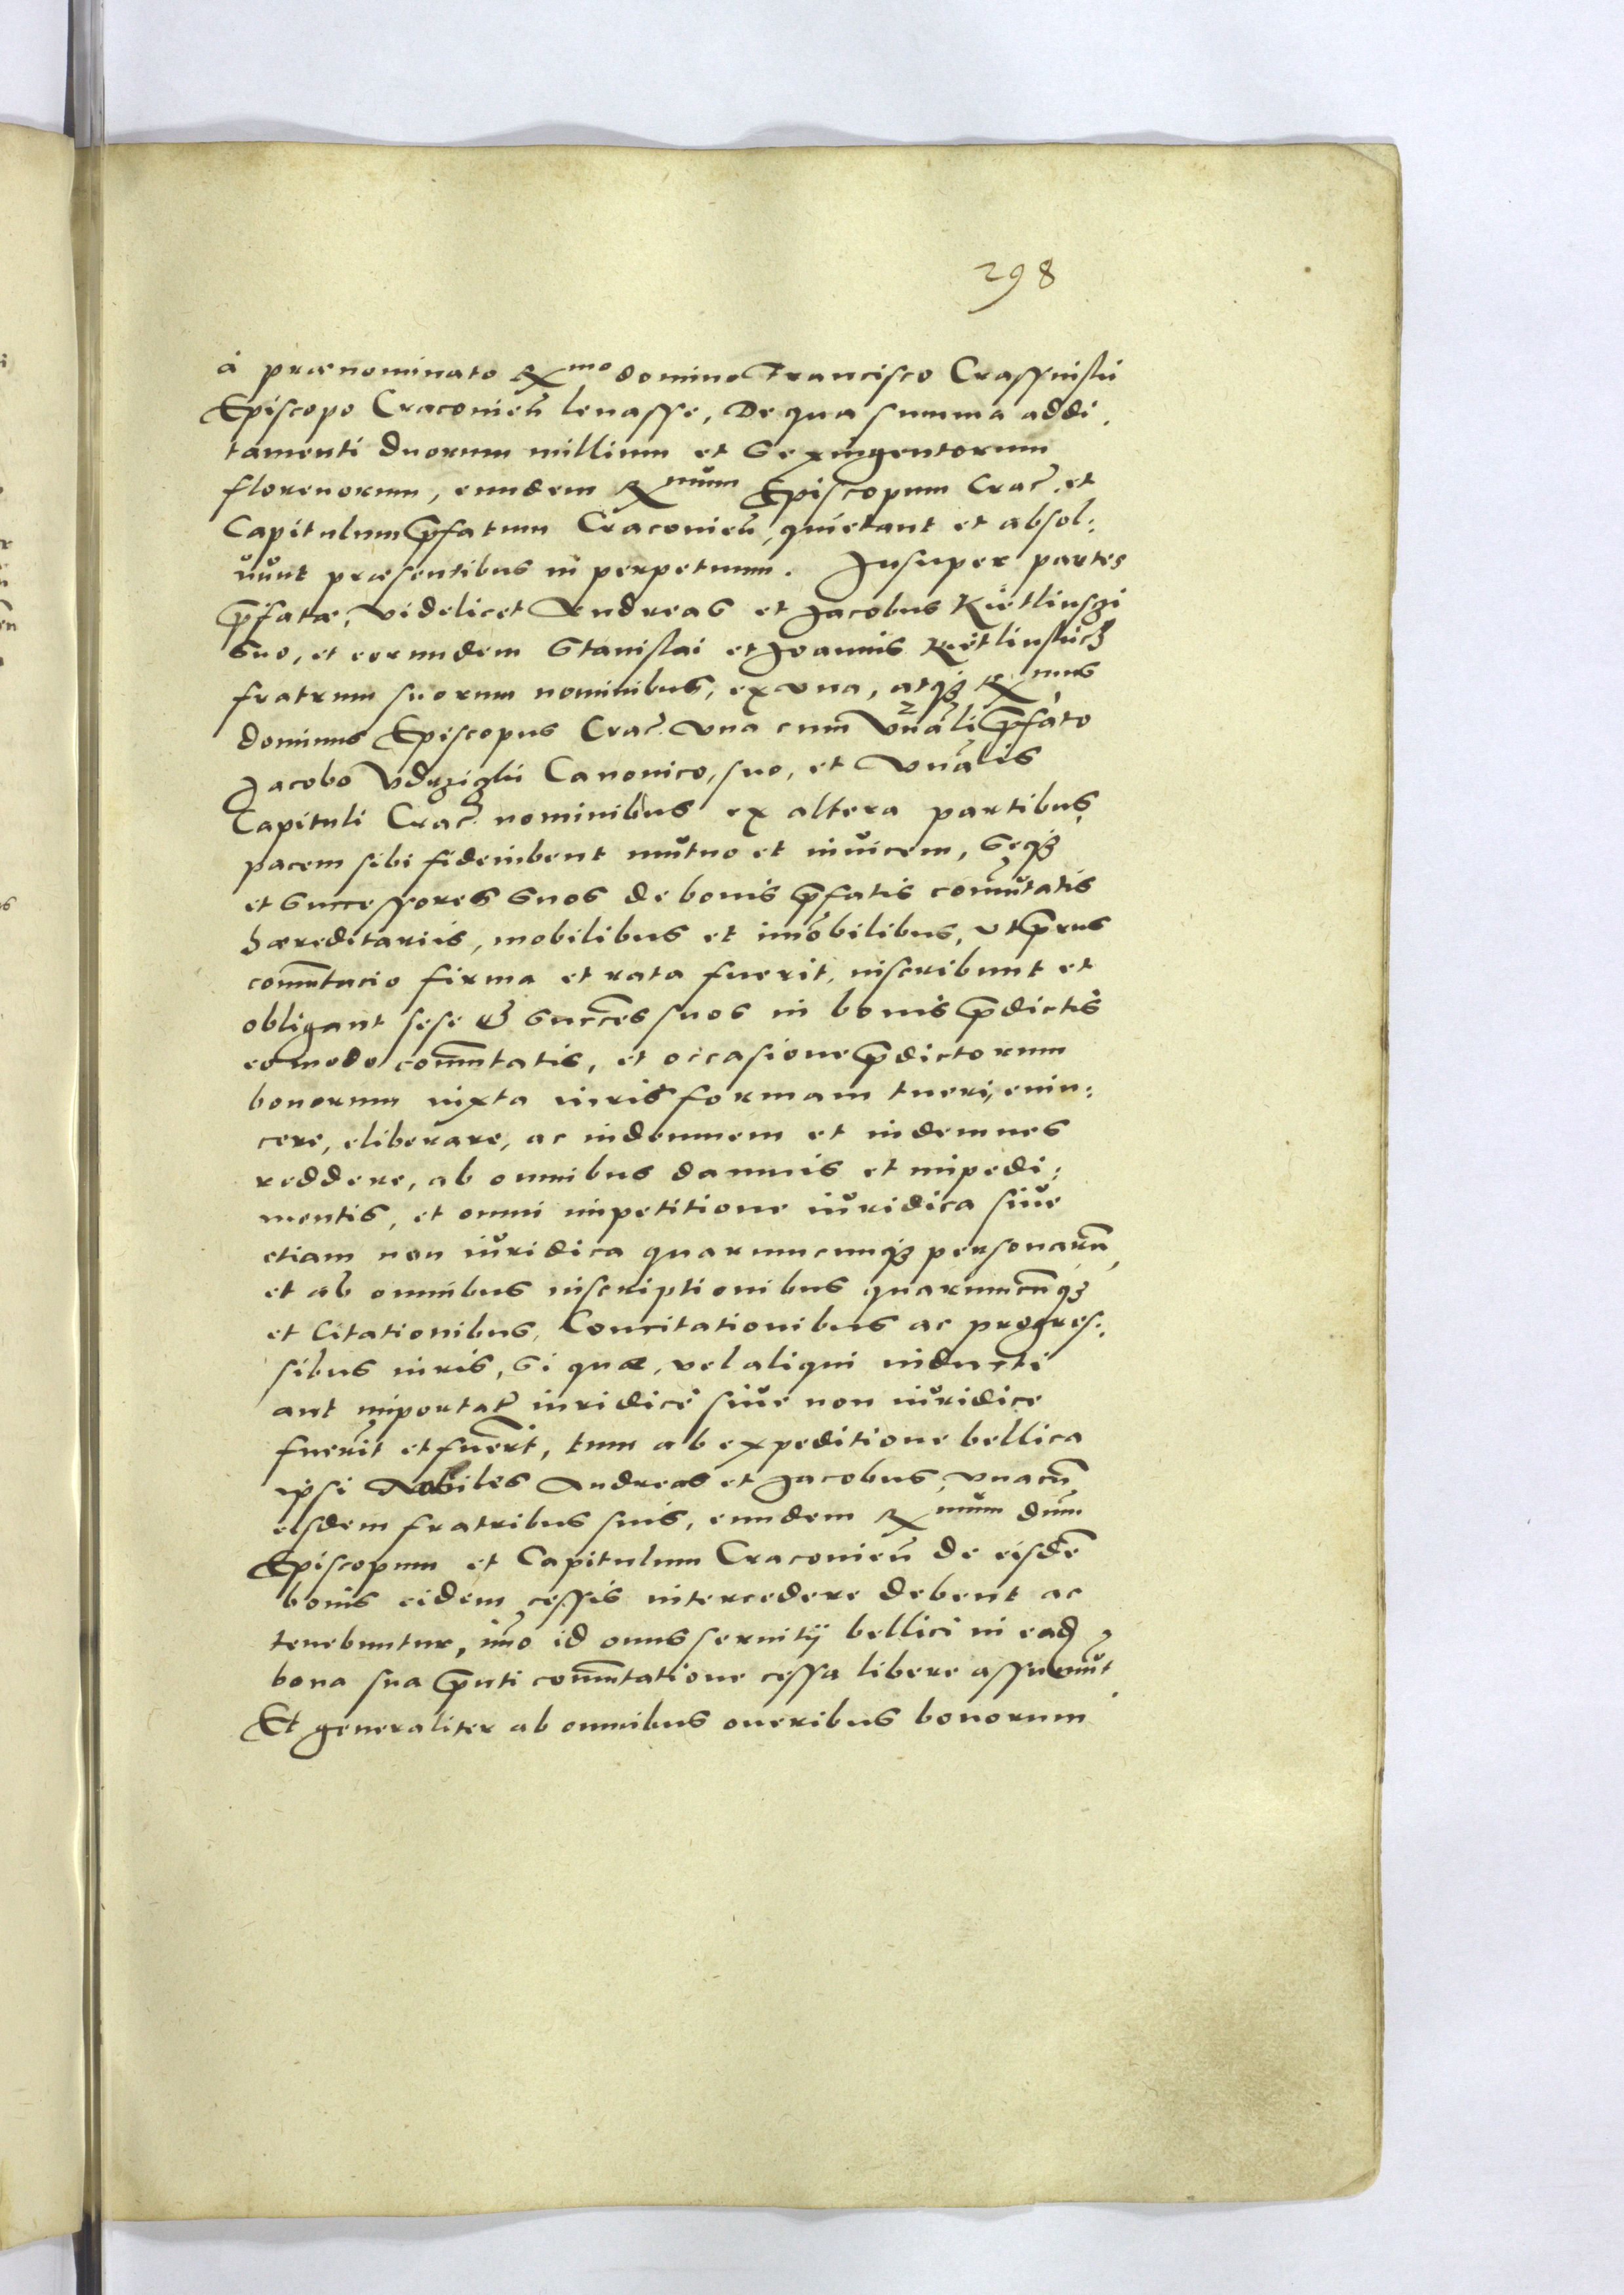 298
à prænominato Rx^mo domino Francisco Crassinskii
Episcopo Craconieñ leuasse, De qua summa addi
tamenti duorum millium et Sexingentorum
florenorum, eundem Rx^mum Episcopum Crac̃. et
Capitulum p̃fatum Craconieñ, quietant et absol:
uunt præsentibus in perpetuum. Insuper partes
p̃fatæ, videlicet Andreas et Jacobus Kietlinszi
Suo, et eorundem Stanislai et Joannis Kietlinskich
fratrum suorum nominibus, ex vna, atq3 Rx^mus
dominus Episcopus Crac̃. vna cum Vñali p̃fato
Jacobo Vdrzighii Canonico, suo, et Vñalis
Capituli Crac̃. nominibus ex altera partibus,
pacem sibi fideiubent mutuo et inuicem, Seq3
et Successores Suos de bonis p̃fatis com̃utatis
hæreditariis, mobilibus et im̃obilibus, vt p̃ens
com̃utacio firma et rata fuerit, inscribunt et
obligant sese & Succ̃es suos in bonis p̃dictis
eo modo com̃utatis, et occasione p̃dictorum
bonorum iuxta iuris formam tueri, euin:
cere, eliberare, ac indemnem et indemnes
reddere, ab omnibus damnis et impedi:
mentis, et omni impetitione iuridica siue
etiam non iuridica quarumcunq3 personarũ,
et ab omnibus inscriptionibus quarumcũq3
et Citationibus, Concitationibus ac progres:
sibus iuris, Si quæ, vel aliqui inducti
aut importatæ iuridicè siue non iuridice
fuerit et fuer̃t, tum ab expeditione bellica
ipsi Nobiles Andreas et Jacobus, vnacũ
eisdem fratribus suis, eundem Rx^mum dũm
Episcopum et Capitulum Craconieñ de eisdẽ
bonis eidem cessis intercedere debent ac
tenebuntur, im̃o id onus seruitij bellici in ead̃
bona sua p̃nti com̃utatione cessa libere assumũt.
Et generaliter ab omnibus oneribus bonorum